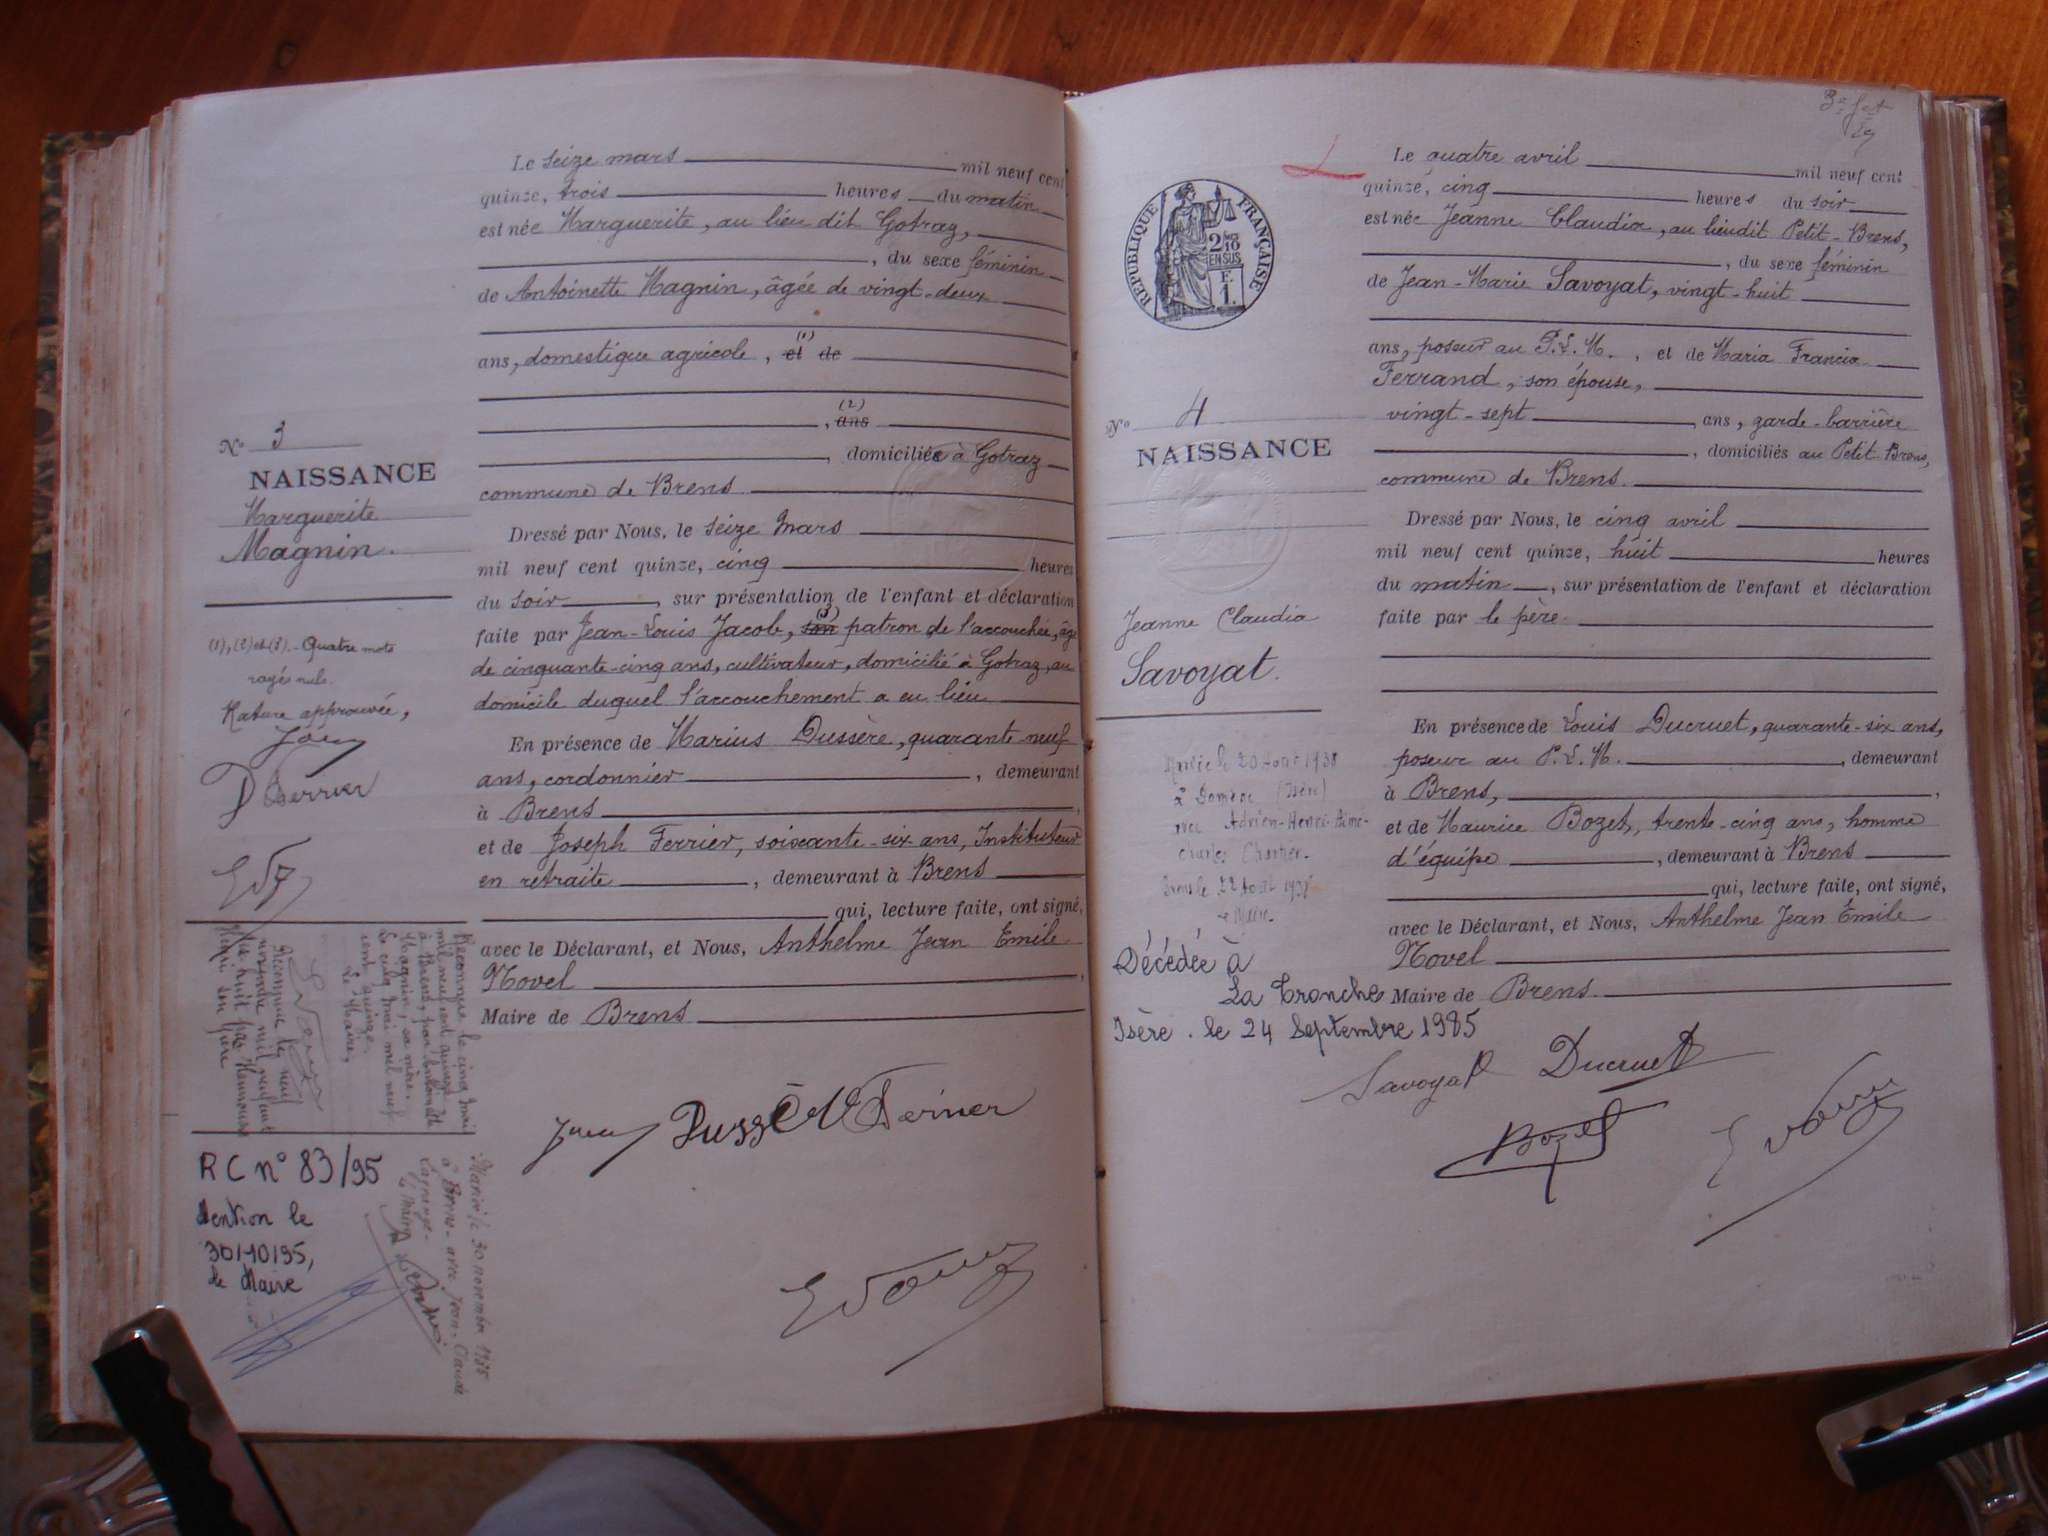 Le seize mars mil neuf cent
quinze, trois heures du matin
est née Marguerite, au lieu dit Gotraz,
, du sexe féminin
de Antoinette Magnin, âgée de vingt-deux
(1)
ans, domestique agricole, et de
(2)
, ans
, domiciliée à Gotraz
commune de Brens
Dressé par Nous, le seize mars
mil neuf cent quinze, cinq heures
du soir, sur présentation de l'enfant et déclaration
(3)
faite par Jean-Louis Jacob, son patron de l'accouchée, âgé
de cinquante-cinq ans, cultivateur, domicilié à Gotraz, au
domicile duquel l'accouchement a eu lieu
En présence de Marius Dussère, quarante-neuf
ans, cordonnier, demeurant
à Brens,
et de Joseph Ferrier, soixante-six ans, Instituteur
en retraite, demeurant à Brens
qui, lecture faite, ont signé,
avec le Déclarant, et Nous, Anthelme Jean Emile
Novel,
Maire de Brens
Dussère Ferrier
N° 3
NAISSANCE
Marguerite
Magnin.
(1), (2) et (3). - Quatre mots
rayés nuls.
Rature approuvée,
Reconnue le cinq mai
mil neuf cent quinze
à Brens, par Antoinette
Magnin, sa mère.
Le cinq mai mil neuf
cent quinze.
Le Maire,
Reconnue le neuf
novembre mil neuf cent
dix huit par
son père
RC n° 83/95
Mention le
30/10/95,
Le Maire
Marié le 30 novembre
à Brens - avec Jean-Claude
Le Maire
3e f et
L
REPUBLIQUE FRANÇAISE
2/10
EN SUS
F.
1.
Le quatre avril mil neuf cent
quinze, cinq heures du soir
est née Jeanne Claudia, au lieudit Petit-Brens,
, du sexe féminin
de Jean-Marie Savoyat, vingt-huit
ans, poseur au P.L.M., et de Maria Francia
Ferrand, son épouse,
vingt-sept ans, garde-barrière
, domiciliés au Petit Brens,
commune de Brens.
Dressé par Nous, le cinq avril
mil neuf cent quinze, huit heures
du matin, sur présentation de l'enfant et déclaration
faite par le père.
En présence de Louis Ducruet, quarante-six ans,
poseur au P.L.M., demeurant
à Brens,
et de Maurice Bozet, trente-cinq ans, homme
d'équipe, demeurant à Brens
qui, lecture faite, ont signé,
avec le Déclarant, et Nous, Anthelme Jean Emile
Novel
Maire de Brens.
Savoyat Ducruet
Bozet
N° 4
NAISSANCE
Jeanne Claudia
Savoyat.
Mariée le 20 Août 1938
à Domène (Isère)
avec Adrien-Henri-Aimé-
Charles Chartier.
Brens le 22 Août 1938
Le Maire.
Décédée à
La Tronche
Isère. le 24 Septembre 1985